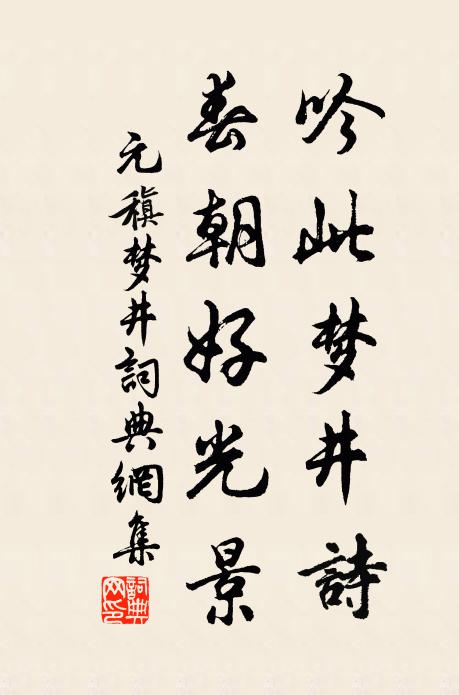 吟此梦井詩
春朝好光景
元稹梦井詞典網集
詞典网印